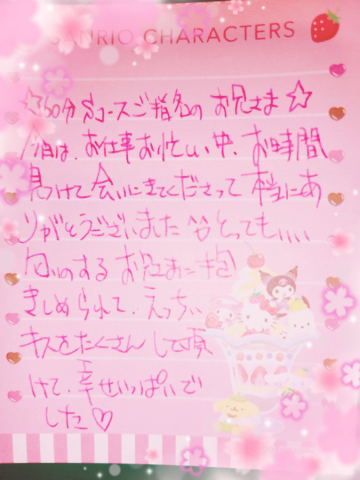 SANRIO CHARACTERS
☆60分Sコースご指名のお兄さま☆
今日は、お仕事お忙しい中、お時間
見つけて会いにきてくださって本当にあ
りがとうございました^^とってもいい
匂いのするお兄さまに抱
きしめられて、えっちぃ
キスをたくさんして頂
けて、幸せいっぱいで
した♡